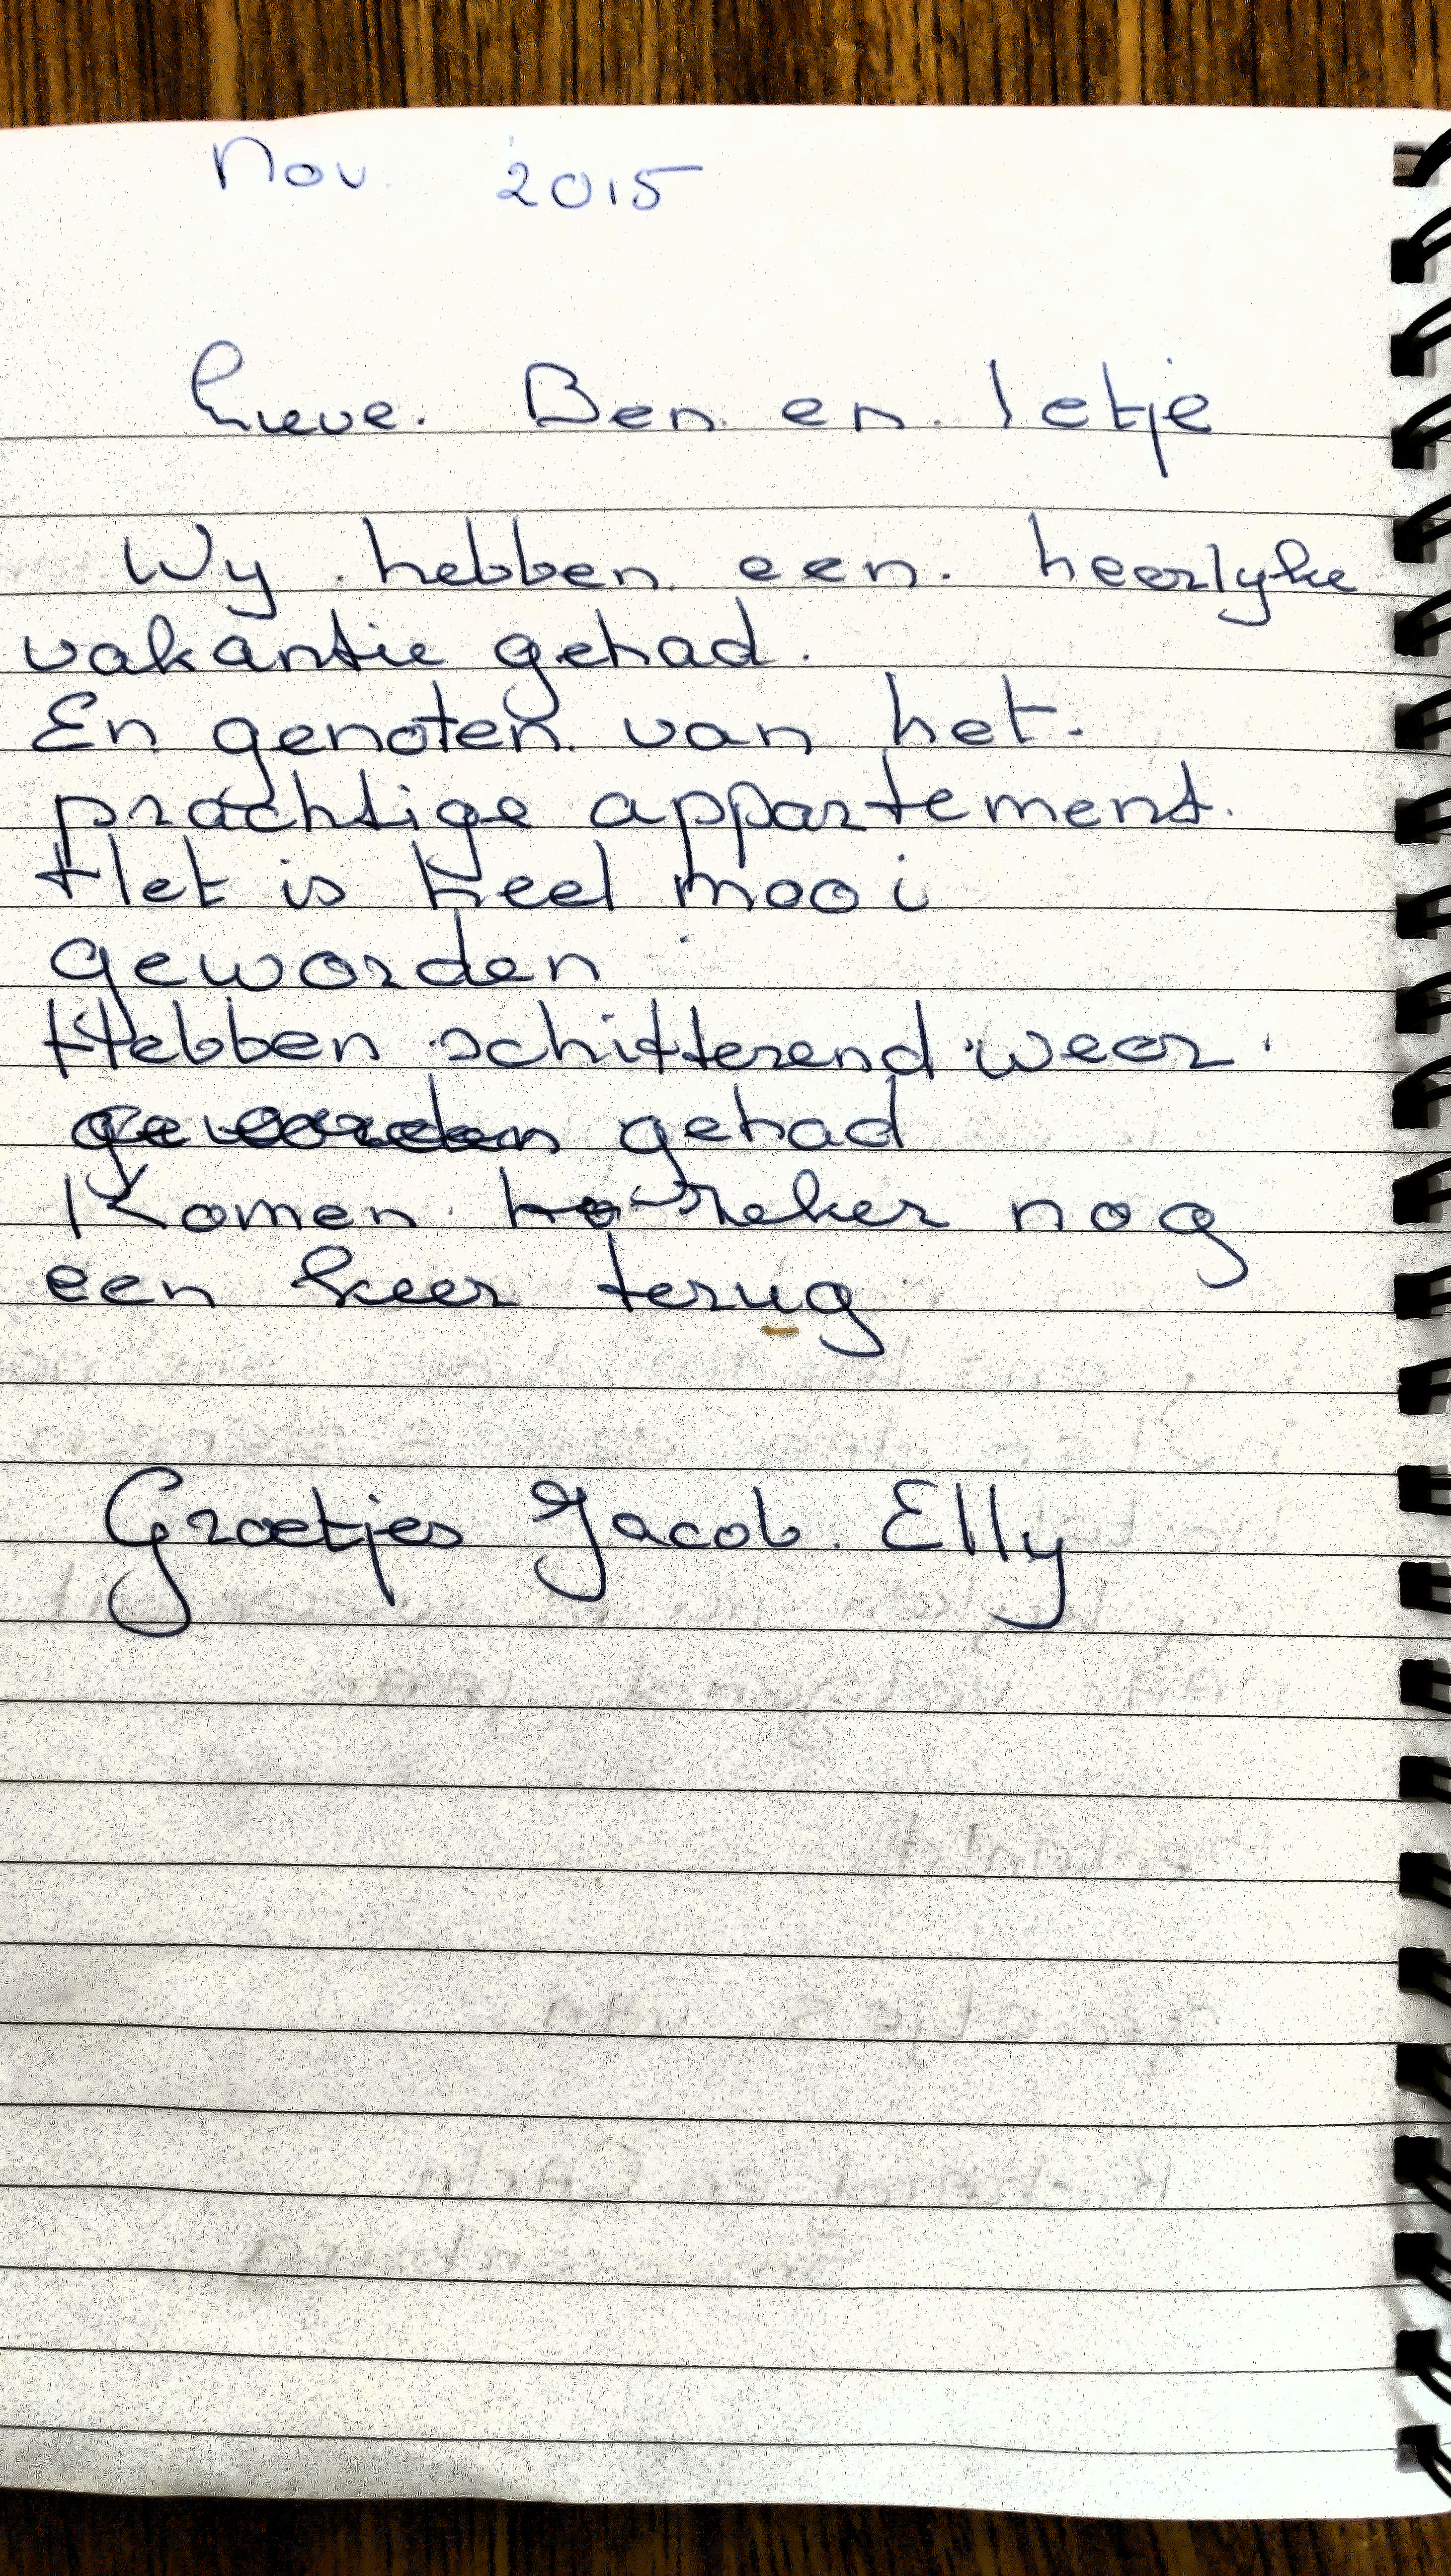 Nov. 2015
Lieve. Ben en. Ietje
Wy hebben een. heerlyke
vakantie gehad.
En genoten van het.
prachtige appartement.
Het is heel mooi
geworden.
Hebben schitterend weer.
geworden gehad
Komen zeker nog
een keer terug
Groetjes Jacob. Elly